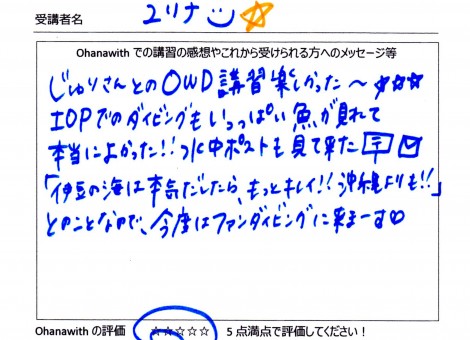 受講者名 ユリナ
Ohanawith での講習の感想やこれから受けられる方へのメッセージ等
じゅりさんとのOWD講習楽しかった～☆☆☆
IOPでのダイビングもいっぱい魚が見れて
本当によかった!! 水中ポストも見て来た〒
「伊豆の海は本気だしたら、もっとキレイ!! 沖縄よりも!!」
とのことなので、今度はファンダイビングに来まーす♡
Ohanawith の評価 ☆☆☆☆☆ 5 点満点で評価してください！